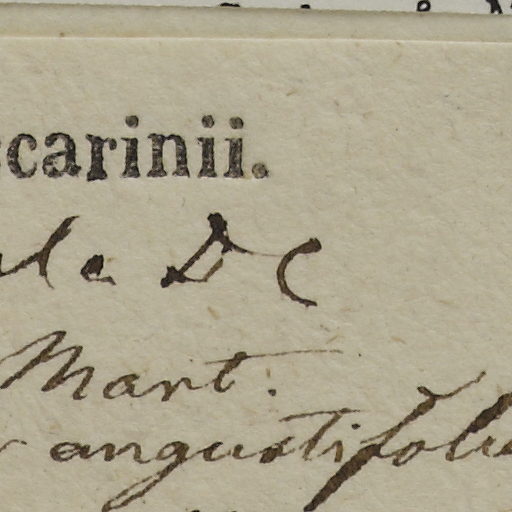 carinii.
DC
Mart.
angustifoli